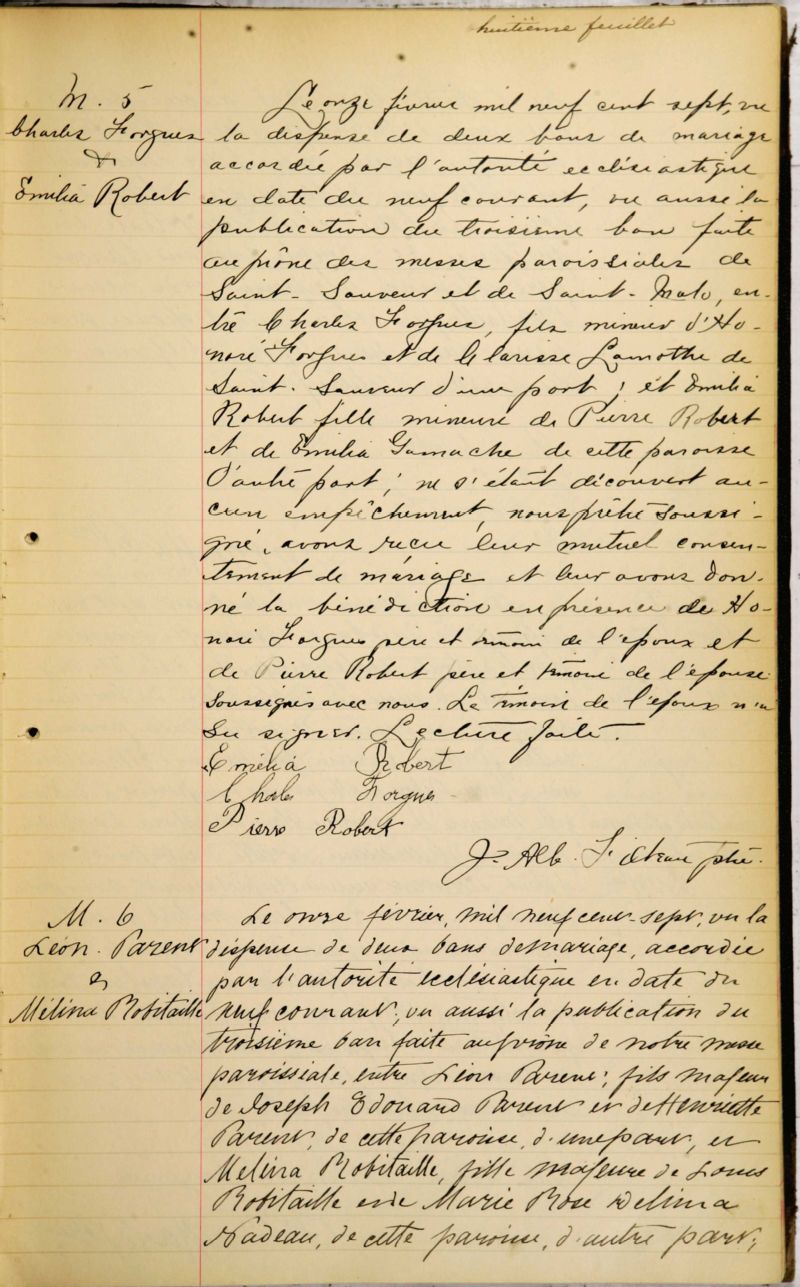 huitième feuillet
M. 5
Charles Forgues
&
Emilia Robert
Le onze février mil neuf cent sept, vu
la dispense de deux bans de mariage
accordée par l'autorité ecclésiastique
en date du neuf courant, vu aussi la
publication du troisième ban faite
au prône des messes paroissiales de
Saint-Sauveur et de Saint-Malo, en-
tre Charles Forgues, fils mineur d'Ho-
noré Forgues et de Clarisse Lamothe de
Saint-Sauveur d'une part; et Emilia
Robert fille mineure de Pierre Robert
et de Emilia Gamache de cette paroisse
d'autre part; ne s'étant découvert au-
cun empêchement, nous prêtre soussi-
gné, avons reçu leur mutuel consen-
tement de mariage et leur avons don-
né la bénédiction en présence de Ho-
noré Forgues père et témoin de l'époux et
de Pierre Robert père et témoin de l'épouse
soussignés avec nous. Le témoin de l'époux n'a
su signer. Lecture faite.
Emélia Robert
Charles Forgues
Pierre Robert
J. Alb. ptre.
M. 6
Léon Parent
&
Mélina Robitaille
Le onze février, mil neuf cent-sept, vu la
dispense de deux bans de mariage, accordée
par l'autorité ecclésiastique en date du
neuf courant; vu aussi la publication du
troisième ban faite au prône de notre messe
paroissiale, entre Léon Parent; fils majeur
de Joseph Edouard Parent et de Henriette
Parent, de cette paroisse, d'une part, et
Mélina Robitaille, fille majeure de Louis
Robitaille et de Marie Rose Delima
Nadeau, de cette paroisse, d'autre part;